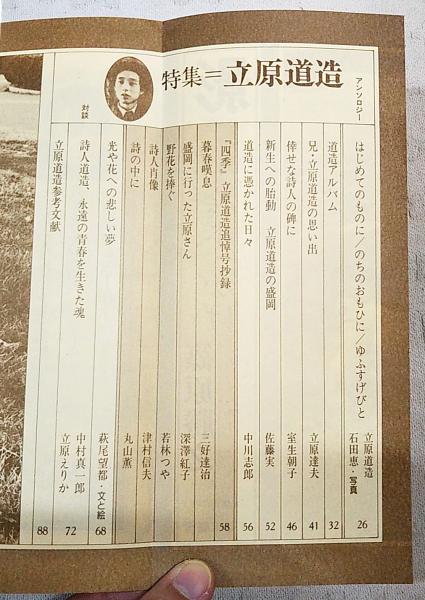 特集＝立原道造
アンソロジー
はじめてのものに／のちのおもひに／ゆふすげびと 立原道造 石田惠・写真 26
道造アルバム 32
兄・立原道造の思い出 立原達夫 41
倖せな詩人の碑に 室生朝子 46
新生への胎動 立原道造の盛岡 佐藤実 52
道造に憑かれた日々 中川志郎 56
『四季』立原道造追悼号抄録 58
暮春嘆息 三好達治
盛岡に行った立原さん 深澤紅子
野花を捧ぐ 若林つや
詩人肖像 津村信夫
詩の中に 丸山薫
光や花への悲しい夢 萩尾望都・文と絵 68
対談
詩人道造、永遠の青春を生きた魂 中村真一郎 立原えりか 72
立原道造参考文献 88